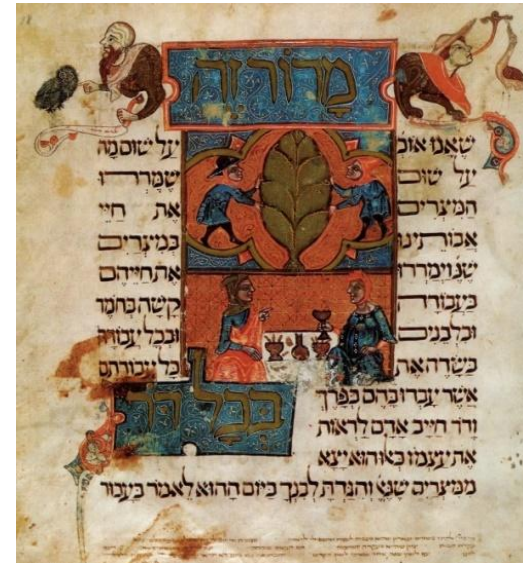 מָרוֹר זֶה
שאנו אוכ׳ על שום מה
על שום שמררו
המיצרים את חיי
אבותינו במיצרים
שנ׳ וימררו את חייהם
בעבודה קשה בחמר
ובלבנים ובכל עבודה
בשדה את כל עבודתם
אשר עבדו בהם בפרך
בְּכָל דוֹר
ודור חייב אדם לראות
את עצמו כאלו הוא יצא
ממיצרים שנא׳ והגדת לבנך ביום ההוא לאמר בעבור